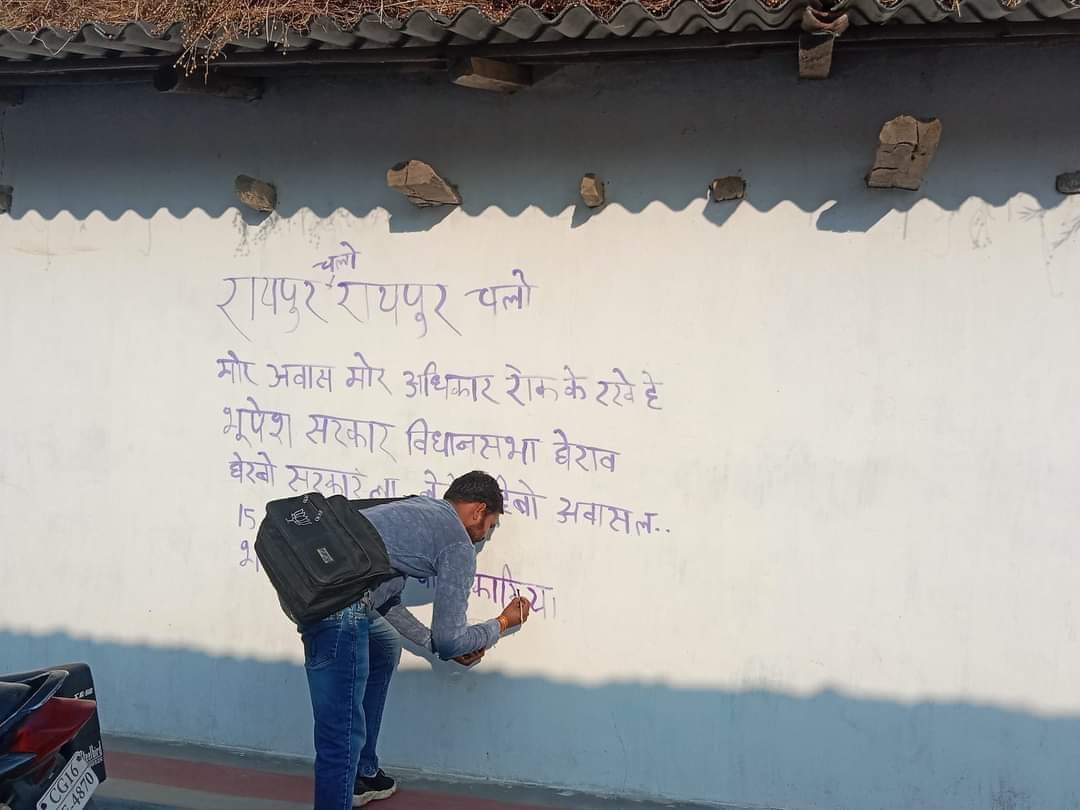 चलो
रायपुर रायपुर चलो
मोर अवास मोर अधिकार रोक के रखे हे
भूपेश सरकार विधानसभा घेराव
घेरबो सरकार ला अवास ल..
15
CG16
4870